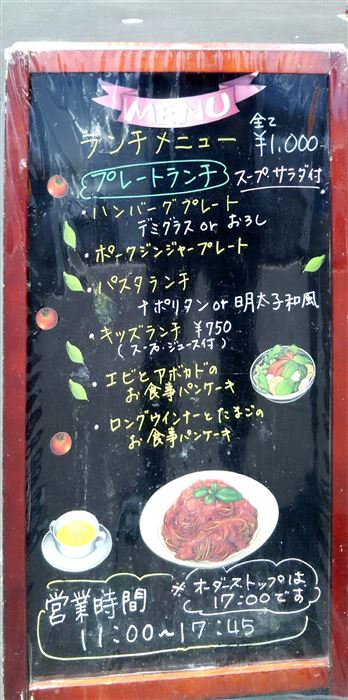 MENU
ランチメニュー 全て ¥1,000
プレートランチ スープ・サラダ付
・ハンバーグプレート
デミグラス or おろし
・ポークジンジャープレート
・パスタランチ
ナポリタン or 明太子和風
・キッズランチ ¥750
(スープ・ジュース付)
・エビとアボカドの
お食事パンケーキ
・ロングウインナーとたまごの
お食事パンケーキ
※オーダーストップは
17:00です
営業時間
11:00~17:45